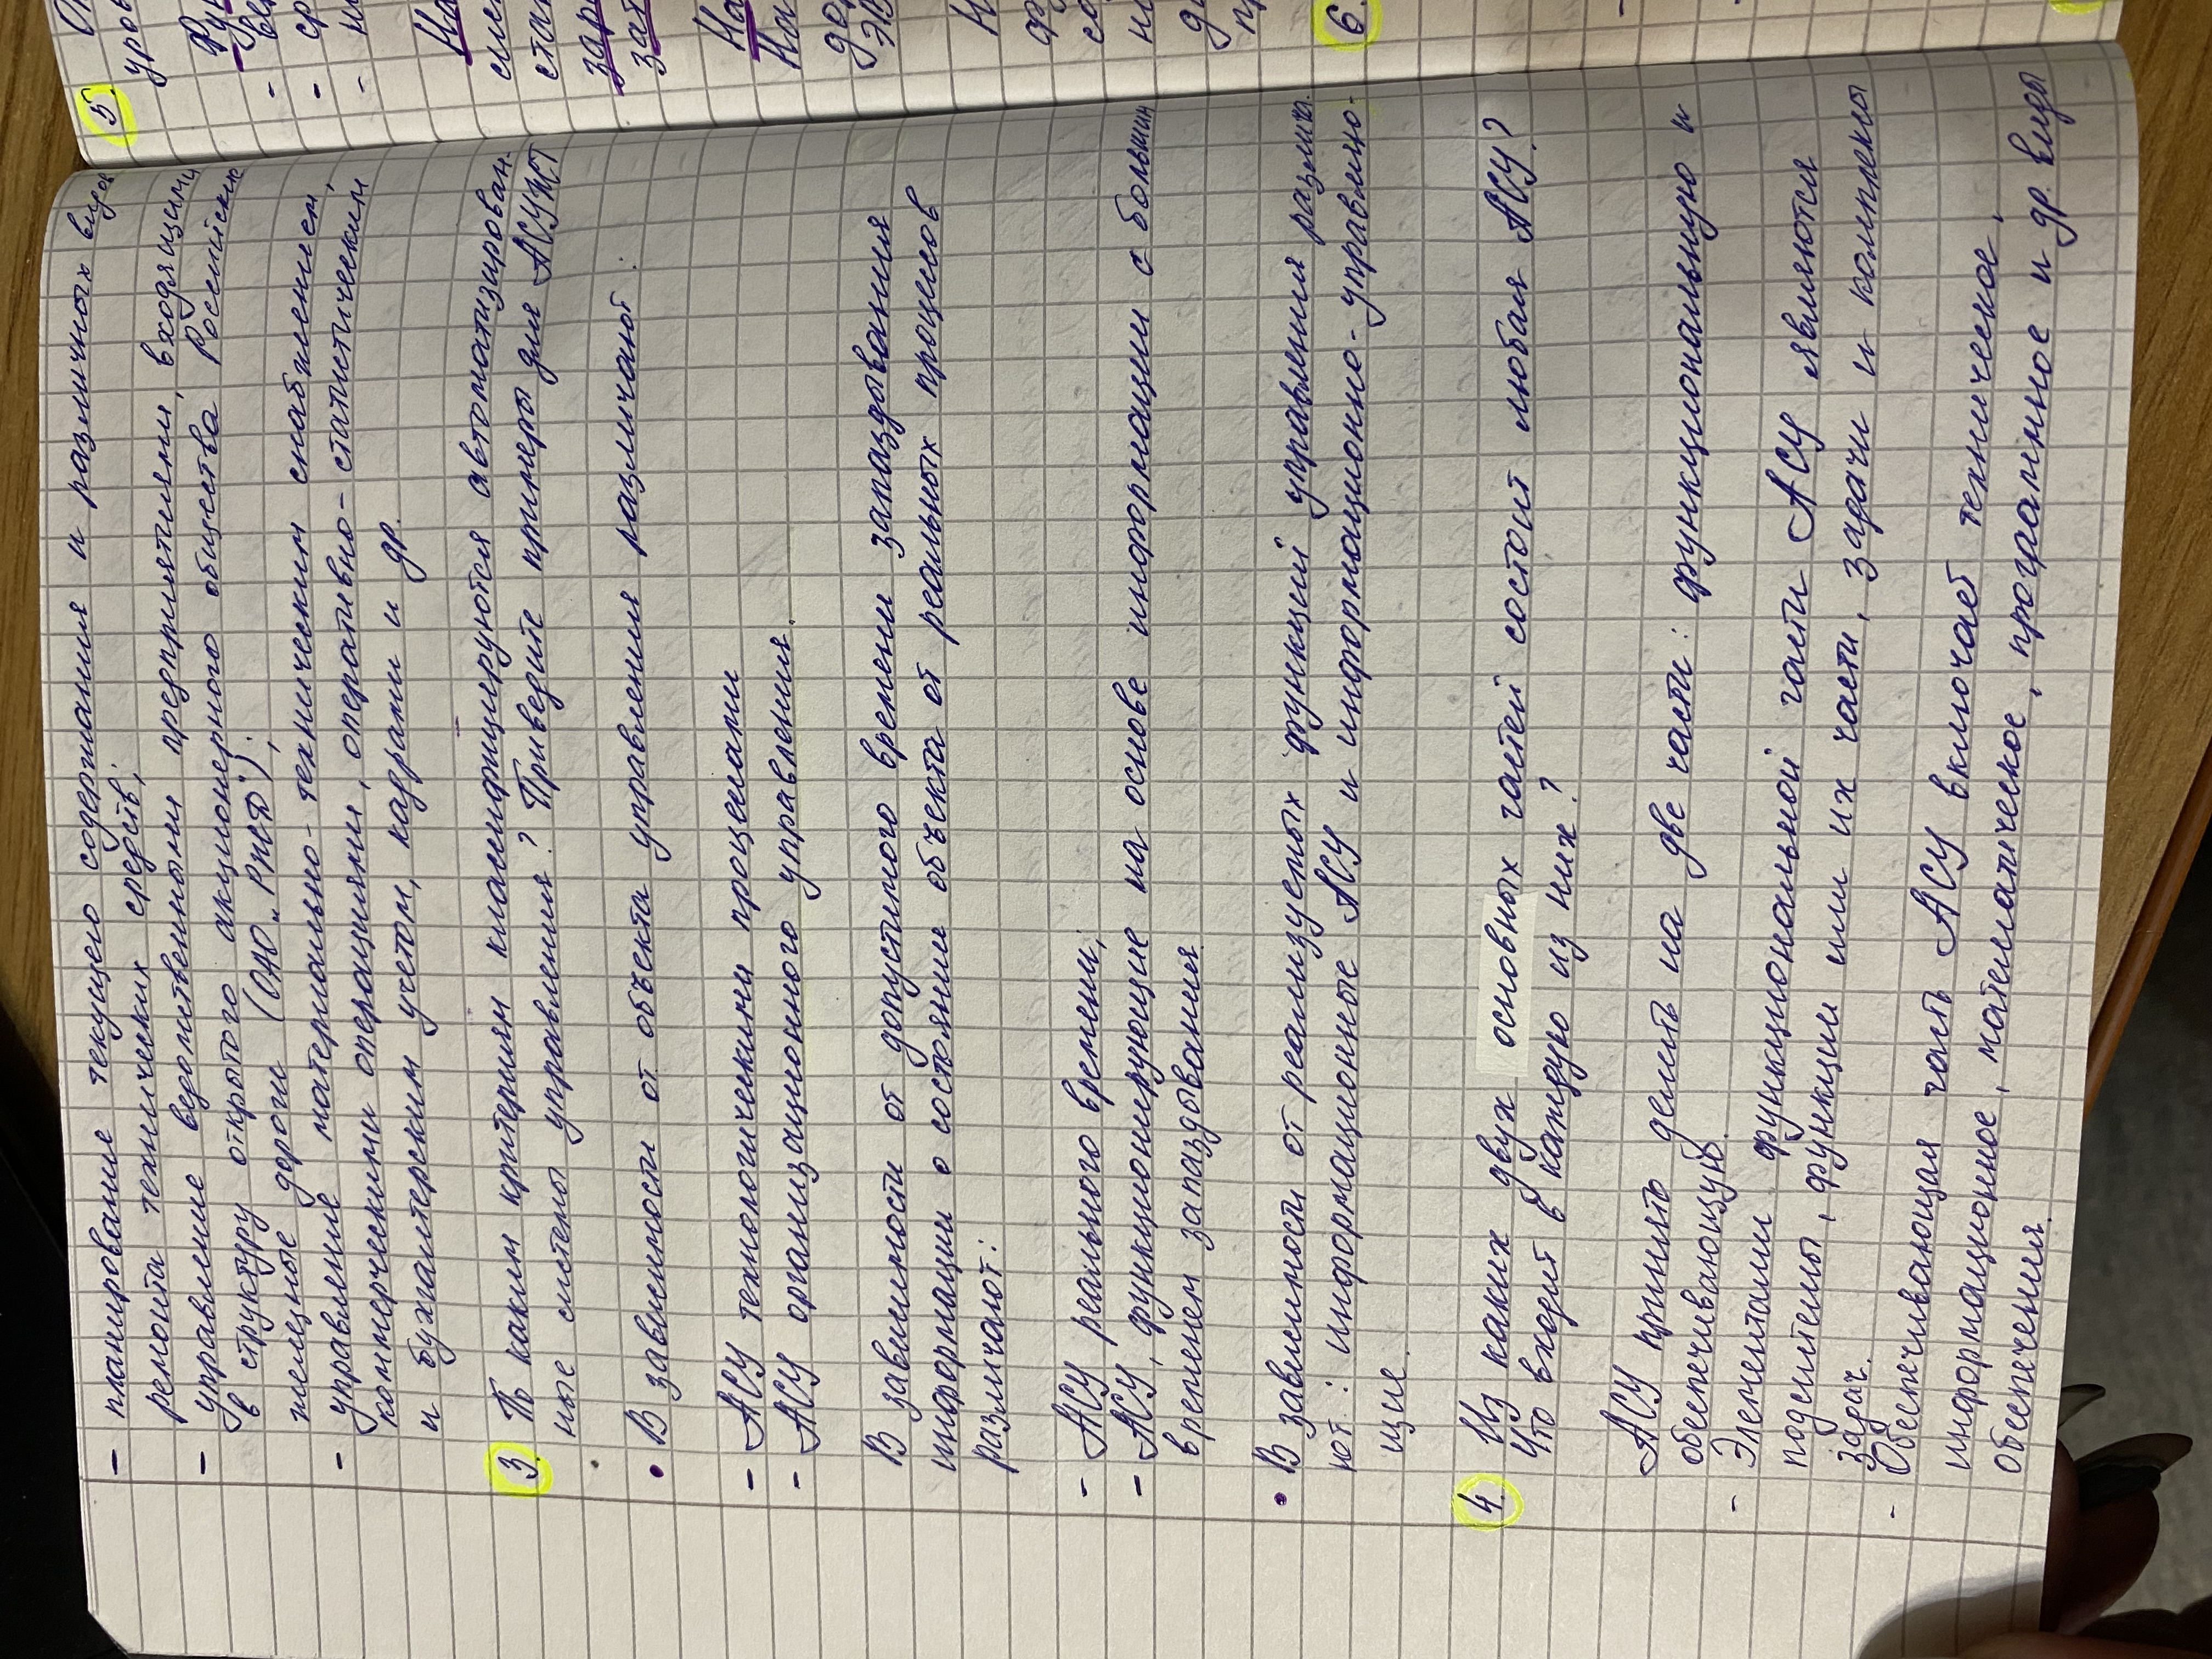 - планирование текущего содержания и различных видов
ремонта технических средств;
- управление ведомственными предприятиями, входящими
в структуру открытого акционерного общества Российские
железные дороги (ОАО „РЖД");
- управление материально-техническим снабжением,
коммерческими операциями, оперативно-статистическим
и бухгалтерским учетом, кадрами и др.
3. По каким критериям классифицируются автоматизирован-
ные системы управления? Приведите примеры для АСУЖТ
• В зависимости от объекта управления различают:
- АСУ технологическими процессами
- АСУ организационного управления.
В зависимости от допустимого времени запаздывания
информации о состоянии объекта от реальных процессов
различают:
- АСУ реального времени;
- АСУ, функционирующие на основе информации с большим
временем запаздывания
• В зависимости от реализуемых функций управления различа-
ют: информационные АСУ и информационно-управляю-
щие.
4. Из каких двух основных частей состоит любая АСУ?
Что входит в каждую из них?
АСУ принять делить на две части: функциональную и
обеспечивающую.
- Элементами функциональной части АСУ являются
подсистемы, функции или их части, задачи и комплексы
задач.
- Обеспечивающая часть АСУ включает техническое,
информационное, математическое, программное и др. виды
обеспечения.
5.
уров
-
-
-
На
ста
зар
На
На
ЭВ
6.